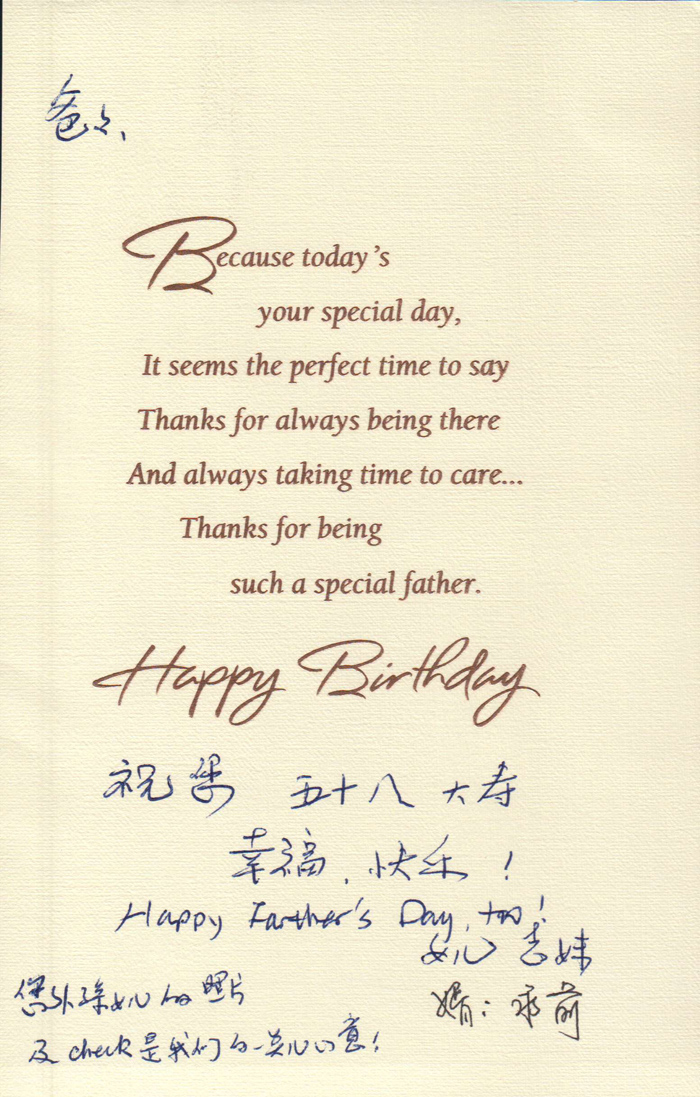 爸爸、
Because today's
your special day,
It seems the perfect time to say
Thanks for always being there
And always taking time to care...
Thanks for being
such a special father.
Happy Birthday
祝您 五十八 大寿
幸福、快乐！
Happy Farther's Day, too!
女儿 志妹
婿: 前
您外孫女儿的照片
及 check 是我们的一点儿心意！